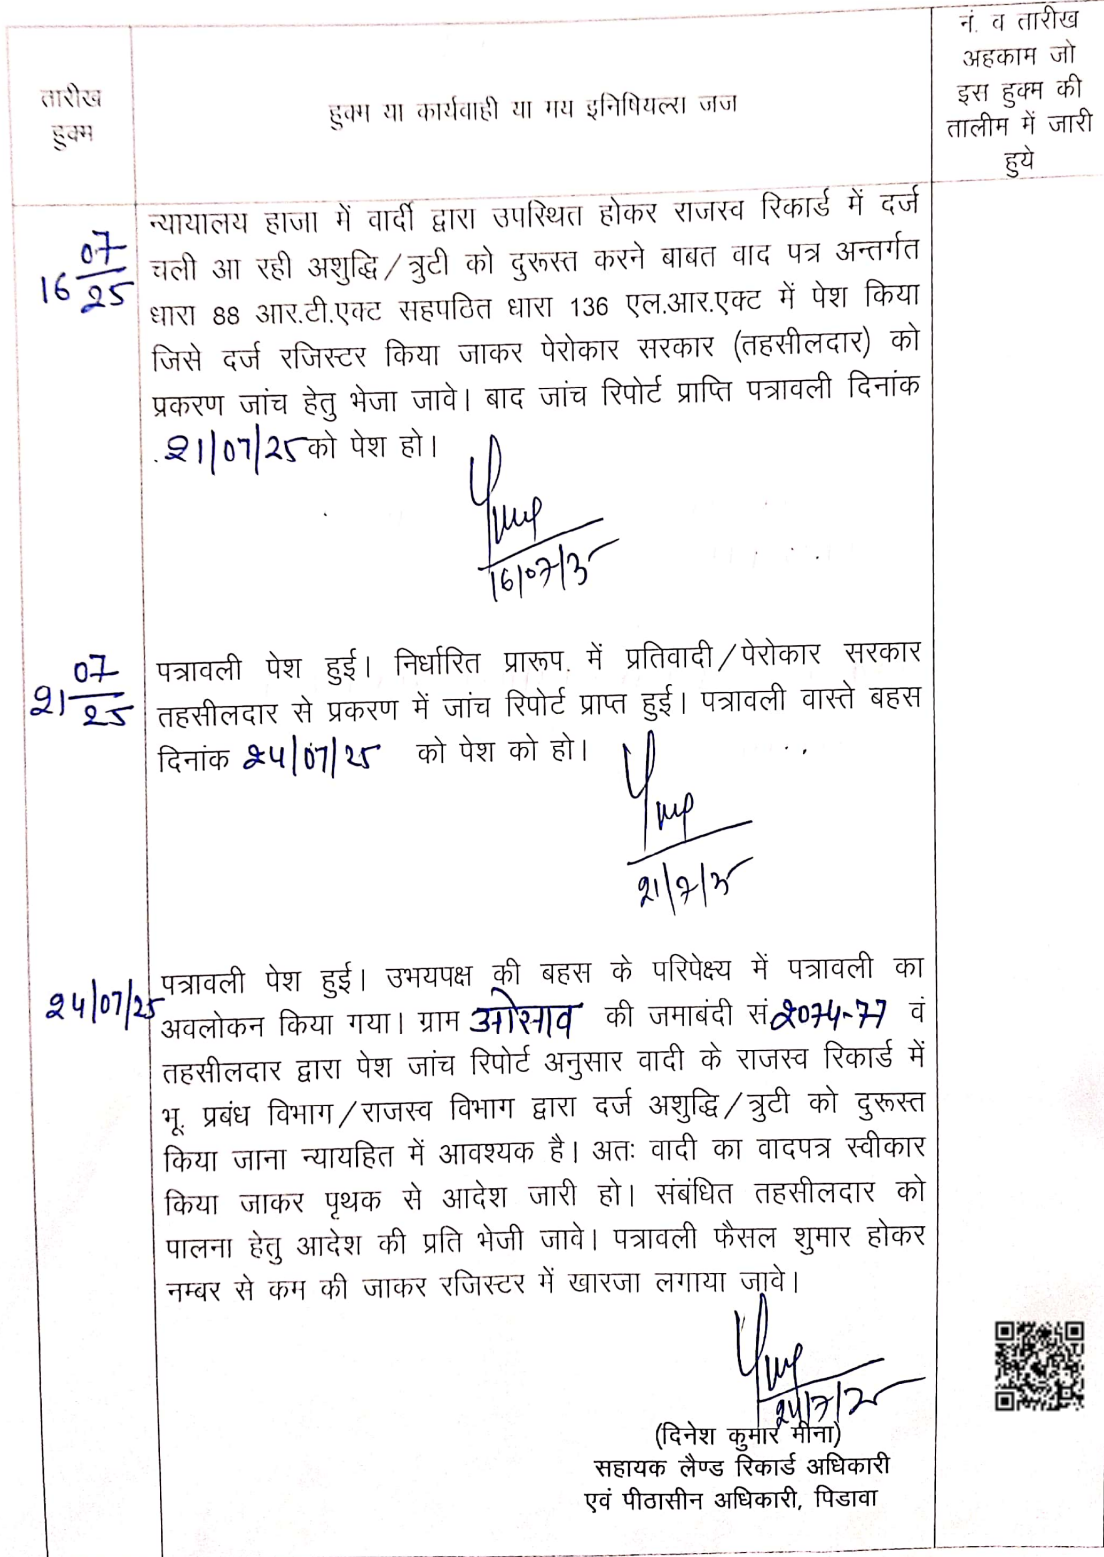 तारीख
हुक्म
हुक्म या कार्यवाही या मय इनिषियल्स जज
नं. व तारीख
अहकाम जो
इस हुक्म की
तालीम में जारी
हुये
16 07/25
न्यायालय हाजा में वादी द्वारा उपस्थित होकर राजस्व रिकार्ड में दर्ज
चली आ रही अशुद्धि/त्रुटी को दुरूस्त करने बाबत वाद पत्र अन्तर्गत
धारा 88 आर.टी.एक्ट सहपठित धारा 136 एल.आर.एक्ट में पेश किया
जिसे दर्ज रजिस्टर किया जाकर पेरोकार सरकार (तहसीलदार) को
प्रकरण जांच हेतु भेजा जावे। बाद जांच रिपोर्ट प्राप्ति पत्रावली दिनांक
21/07/25 को पेश हो।
16/07/25
21 07/25
पत्रावली पेश हुई। निर्धारित प्रारूप में प्रतिवादी/पेरोकार सरकार
तहसीलदार से प्रकरण में जांच रिपोर्ट प्राप्त हुई। पत्रावली वास्ते बहस
दिनांक 24/07/25 को पेश को हो।
21/7/25
24/07/25
पत्रावली पेश हुई। उभयपक्ष की बहस के परिपेक्ष्य में पत्रावली का
अवलोकन किया गया। ग्राम ओसाव की जमाबंदी सं 2074-77 वं
तहसीलदार द्वारा पेश जांच रिपोर्ट अनुसार वादी के राजस्व रिकार्ड में
भू. प्रबंध विभाग/राजस्व विभाग द्वारा दर्ज अशुद्धि/त्रुटी को दुरूस्त
किया जाना न्यायहित में आवश्यक है। अतः वादी का वादपत्र स्वीकार
किया जाकर पृथक से आदेश जारी हो। संबंधित तहसीलदार को
पालना हेतु आदेश की प्रति भेजी जावे। पत्रावली फैसल शुमार होकर
नम्बर से कम की जाकर रजिस्टर में खारजा लगाया जावे।
24/7/25
(दिनेश कुमार मीना)
सहायक लैण्ड रिकार्ड अधिकारी
एवं पीठासीन अधिकारी, पिडावा